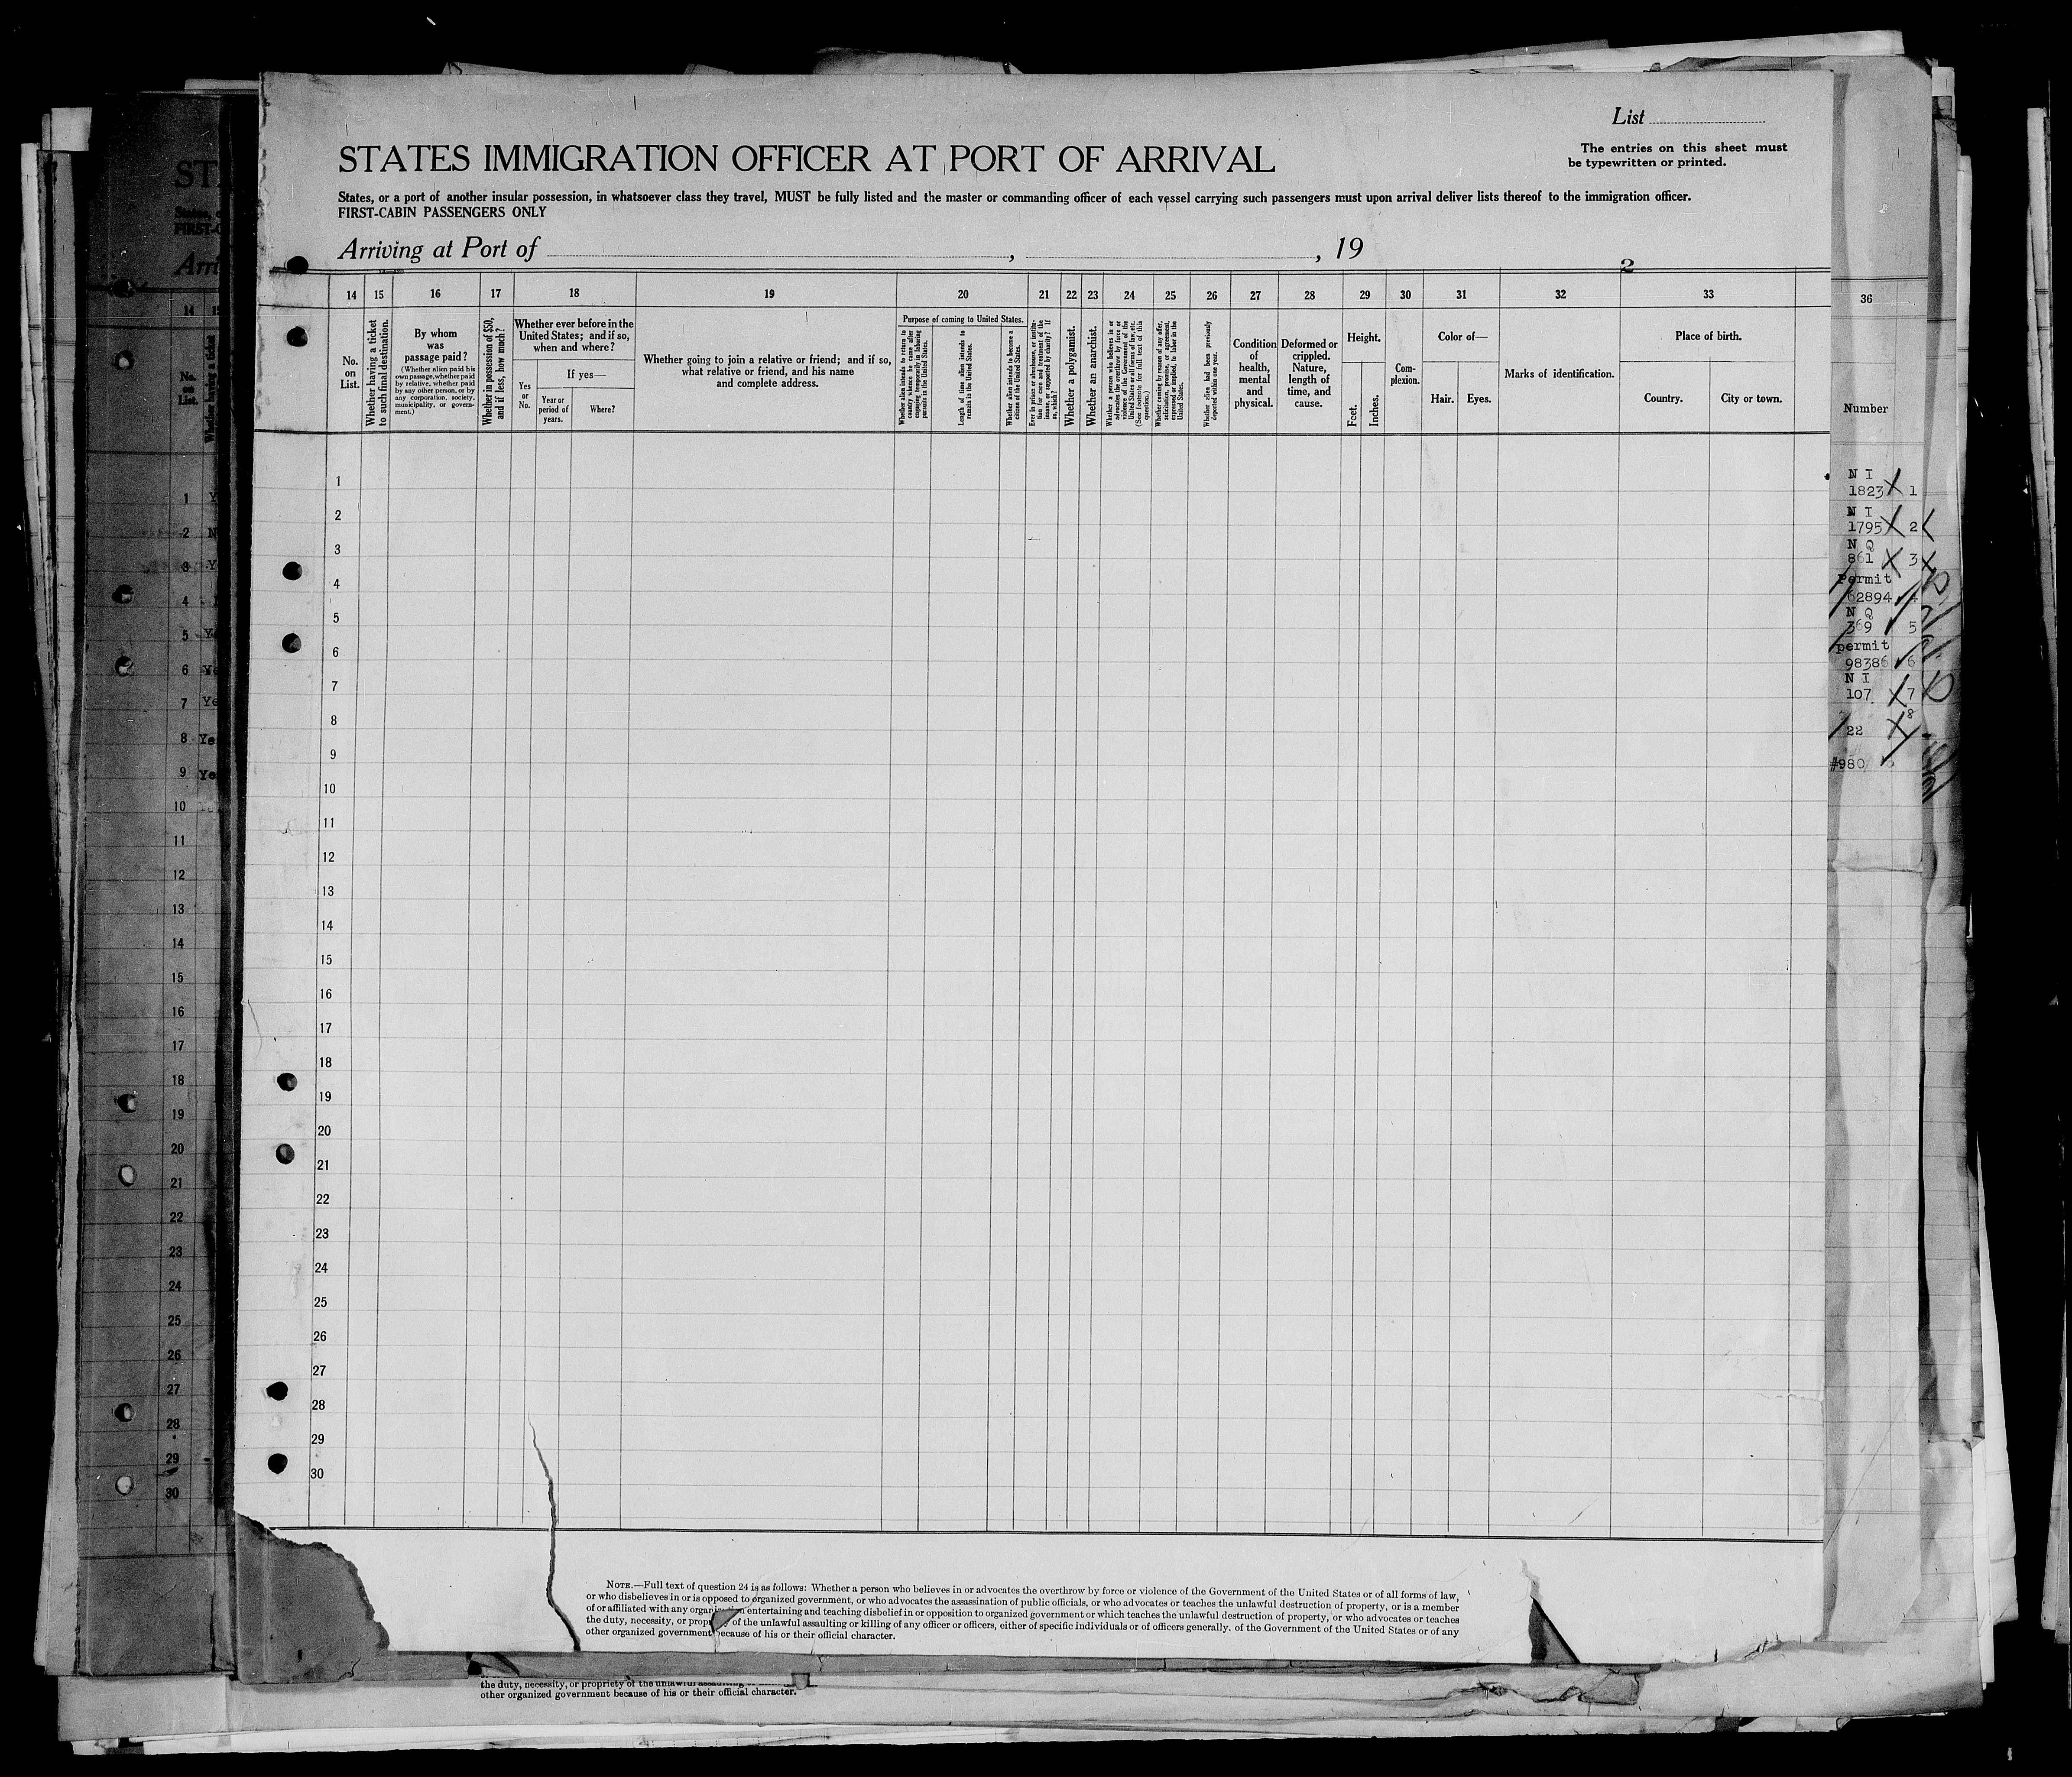 List
STATES IMMIGRATION OFFICER AT PORT OF ARRIVAL
The entries on this sheet must
be typewritten or printed.
States, or a port of another insular possession, in whatsoever class they travel, MUST be fully listed and the master or commanding officer of each vessel carrying such passengers must upon arrival deliver lists thereof to the immigration officer.
FIRST-CABIN PASSENGERS ONLY
Arriving at Port of , , 19
2
14 15 16 17 18 19 20 21 22 23 24 25 26 27 28 29 30 31 32 33
36
No.
on
List.
Whether having a ticket
to such final destination.
By whom
was
passage paid?
(Whether alien paid his
own passage, whether paid
by relative, whether paid
by any other person, or by
any corporation, society,
municipality, or govern-
ment.)
Whether in possession of $50,
and if less, how much?
Whether ever before in the
United States; and if so,
when and where?
Yes
or
No.
If yes—
Year or
period of
years.
Where?
Whether going to join a relative or friend; and if so,
what relative or friend, and his name
and complete address.
Purpose of coming to United States.
Whether alien intends to return to
country whence he came after
engaging temporarily in laboring
pursuits in the United States.
Length of time alien intends to
remain in the United States.
Whether alien intends to become a
citizen of the United States.
Ever in prison or almshouse, or institu-
tion for care and treatment of the
insane, or supported by charity? If
so, which?
Whether a polygamist.
Whether an anarchist.
Whether a person who believes in or
advocates the overthrow by force or
violence of the Government of the
United States or all forms of law, etc.
(See footnote for full text of this
question.)
Whether coming by reason of any offer,
solicitation, promise, or agreement,
expressed or implied, to labor in the
United States.
Whether alien had been previously
deported within one year.
Condition
of
health,
mental
and
physical.
Deformed or
crippled.
Nature,
length of
time, and
cause.
Height.
Feet.
Inches.
Com-
plexion.
Color of—
Hair.
Eyes.
Marks of identification.
Place of birth.
Country.
City or town.
Number
1
2
3
4
5
6
7
8
9
10
11
12
13
14
15
16
17
18
19
20
21
22
23
24
25
26
27
28
29
30
N I
1823 1
N I
1795 2
N Q
861 3
Permit
62894 4
N Q
369 5
permit
98386 6
N I
107 7
8
22
#980
NOTE.—Full text of question 24 is as follows: Whether a person who believes in or advocates the overthrow by force or violence of the Government of the United States or of all forms of law,
or who disbelieves in or is opposed to organized government, or who advocates the assassination of public officials, or who advocates or teaches the unlawful destruction of property, or is a member
of or affiliated with any organization entertaining and teaching disbelief in or opposition to organized government or which teaches the unlawful destruction of property, or who advocates or teaches
the duty, necessity, or propriety of the unlawful assaulting or killing of any officer or officers, either of specific individuals or of officers generally, of the Government of the United States or of any
other organized government because of his or their official character.
the duty, necessity, or propriety of the unlawful assaulting
other organized government because of his or their official character.
14
No.
on
List.
1
2
3
4
5
6
7
8
9
10
11
12
13
14
15
16
17
18
19
20
21
22
23
24
25
26
27
28
29
30